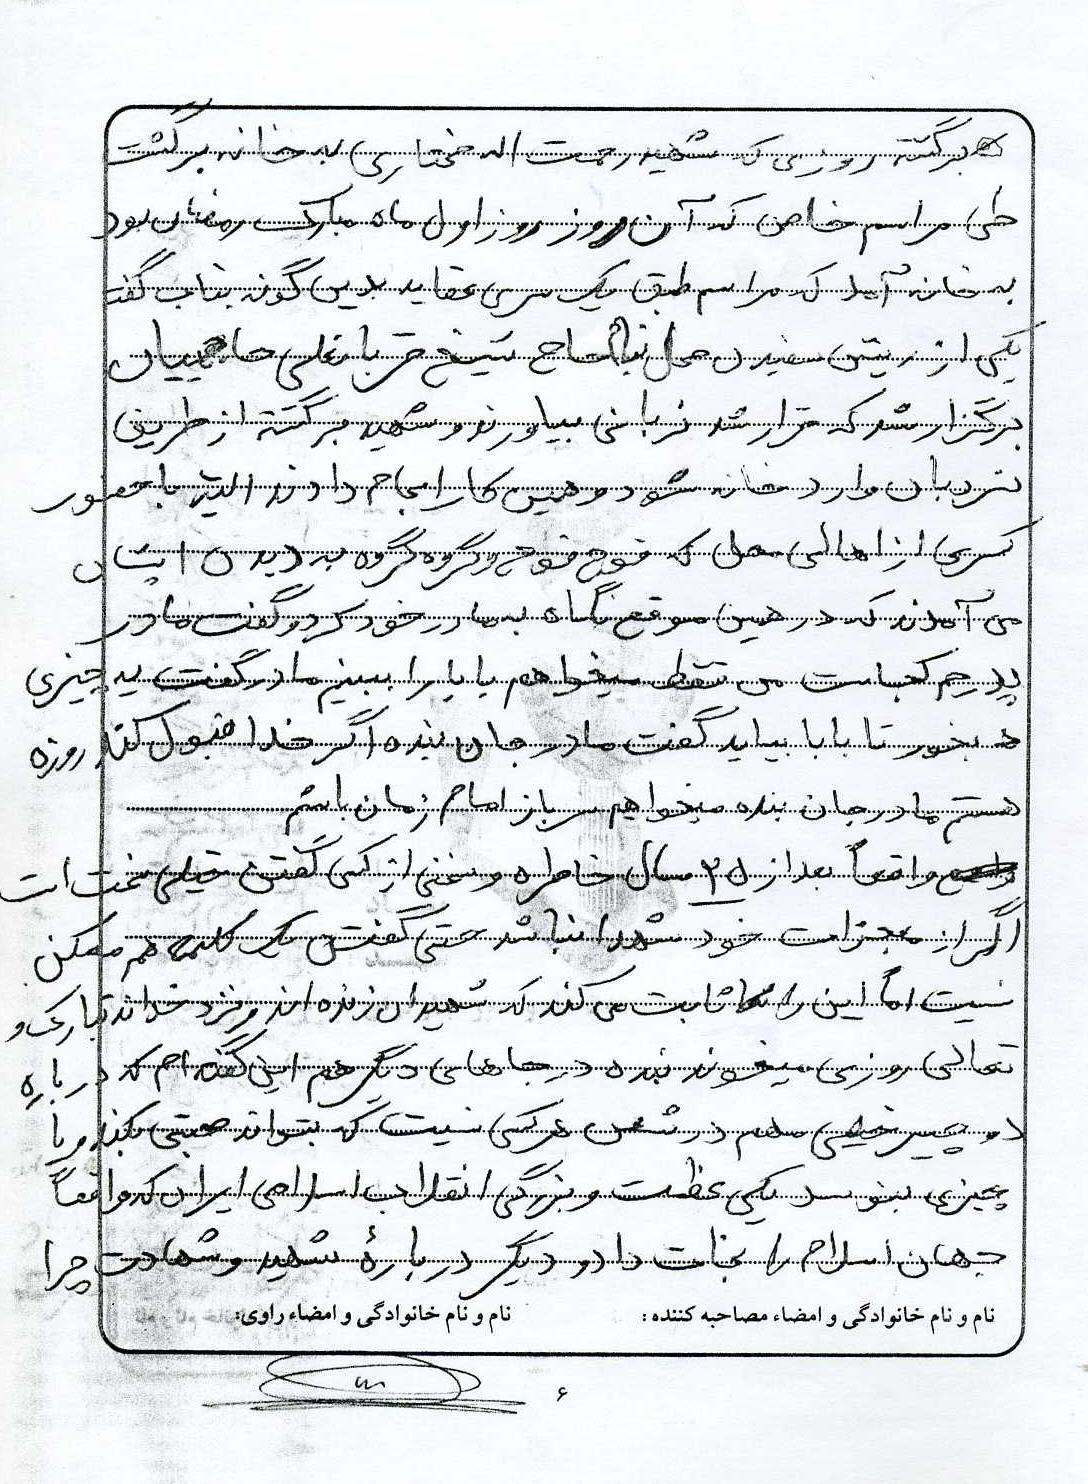 که برگشته روزی که شهید رحمت اله مختاری به خانه برگشت
طی مراسم خاص که آن روز روز اول ماه مبارک رمضان بود
به خانه آمد که مراسم طبق یک سری عقاید بدین گونه بنا به گفته
یکی از ریش سفیدن محل بنام حاج شیخ قربانعلی حاجیان
برگزار شد که قرار شد نردبانی بیاورند و شهید برگشته از طریق
نردبان وارد خانه شود و همین کار انجام دادند البته با حضور
کسری از اهالی محل که فوج فوج و گروه گروه به دیدن ایشان
می آمدند که در همین موقع نگاه به مادر خود کرد و گفت مادر
پدرم کجاست من فقط میخواهم بابا را ببینم مادر گفت یه چیزی
بخور تا بابا بیاید گفت مادر جان بنده اگر خدا قبول کند روزه
هستم مادر جان بنده میخواهم سرباز امام زمان باشم
واقعاً بعد از ۲۵ سال خاطره و سخنی از کسی گفتن خیلی سخت است
اگر از معجزات خود شهدا نباشد حتی گفتن یک کلمه هم ممکن
نیست اماً این را ثابت می کند که شهیدان زنده اند و نزد خداند تبارک و
تعالی روزی میخورند بنده در جاهای دیگر هم این گفته ام که در باره
دو چیز خیلی مهم در شعن هر کسی نیست که بتواند صحبتی بکند و یا
چیزی بنویسد یکی عظمت و بزرگی انقلاب اسلامی ایران که واقعاً
جهان اسلام را نجات داد و دیگر دربارهٔ شهید و شهادت چرا
نام و نام خانوادگی و امضاء مصاحبه کننده: نام و نام خانوادگی و امضاء راوی:
۶